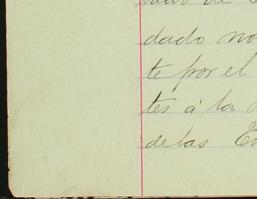 de
dado no
te por el
tes á la
delas